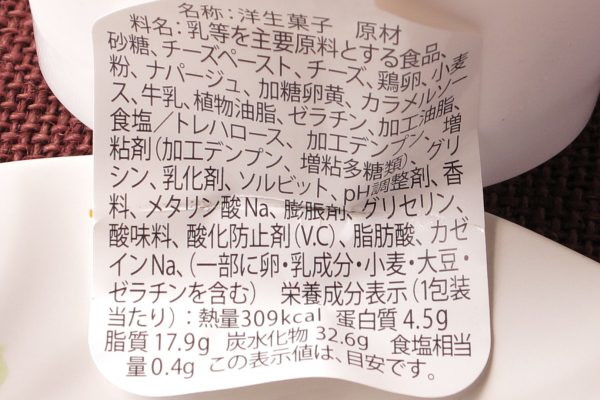 名称:洋生菓子 原材
料名:乳等を主要原料とする食品、
砂糖、チーズペースト、チーズ、鶏卵、小麦
粉、ナパージュ、加糖卵黄、カラメルソー
ス、牛乳、植物油脂、ゼラチン、加工油脂、
食塩/トレハロース、加工デンプン、増
粘剤(加工デンプン、増粘多糖類)、グリ
シン、乳化剤、ソルビット、pH調整剤、香
料、メタリン酸Na、膨脹剤、グリセリン、
酸味料、酸化防止剤(V.C)、脂肪酸、カゼ
インNa、(一部に卵・乳成分・小麦・大豆・
ゼラチンを含む) 栄養成分表示(1包装
当たり):熱量309kcal 蛋白質 4.5g
脂質 17.9g 炭水化物 32.6g 食塩相当
量 0.4g この表示値は、目安です。